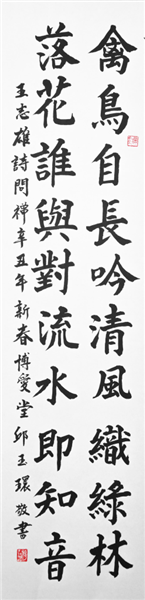 禽鳥自長吟清風織綠林
落花誰與對流水即知音
王志雄詩問禪辛丑年新春博愛堂邱玉環敬書